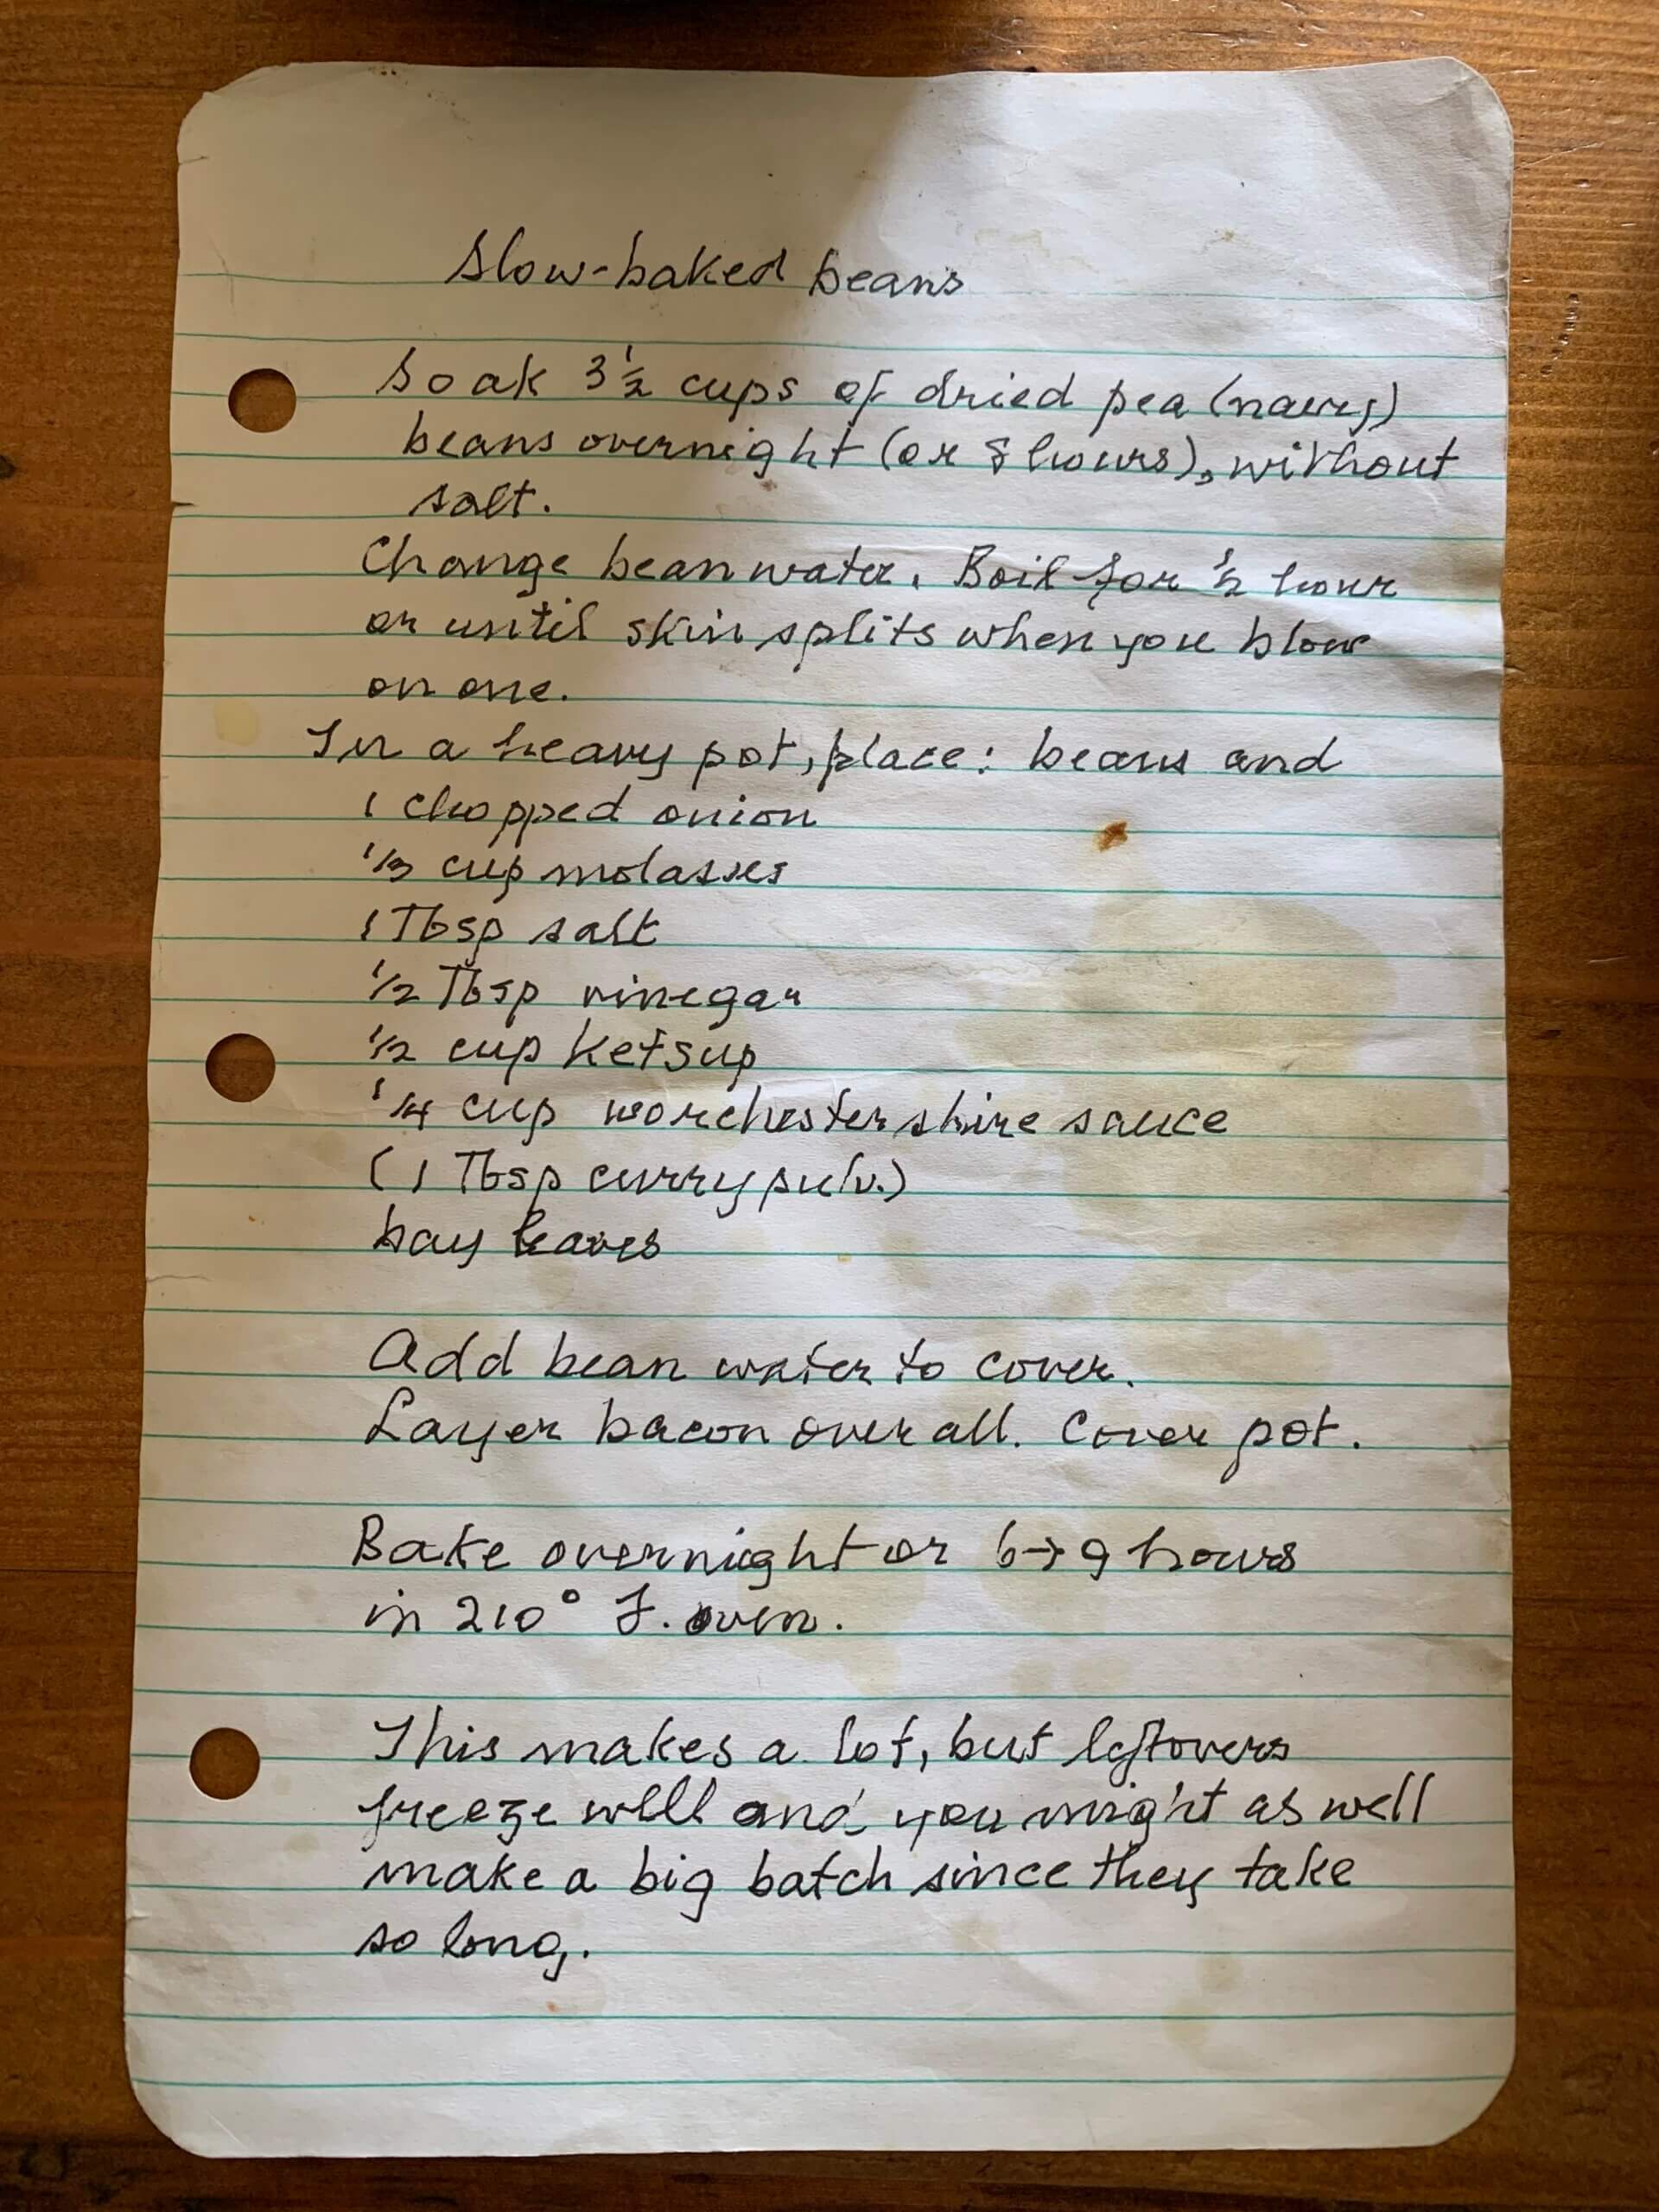 Slow-baked beans
Soak 3 1/2 cups of dried pea (navy)
beans overnight (or 8 hours), without
salt.
Change bean water. Boil for 1/2 hour
or until skin splits when you blow
on one.
In a heavy pot, place: beans and
1 chopped onion
1/3 cup molasses
1 Tbsp salt
1/2 Tbsp vinegar
1/2 cup ketsup
1/4 cup worchestershire sauce
(1 Tbsp curry pulv.)
bay leaves
Add bean water to cover.
Layer bacon over all. Cover pot.
Bake overnight or 6→9 hours
in 210° F. oven.
This makes a lot, but leftovers
freeze well and you might as well
make a big batch since they take
so long.